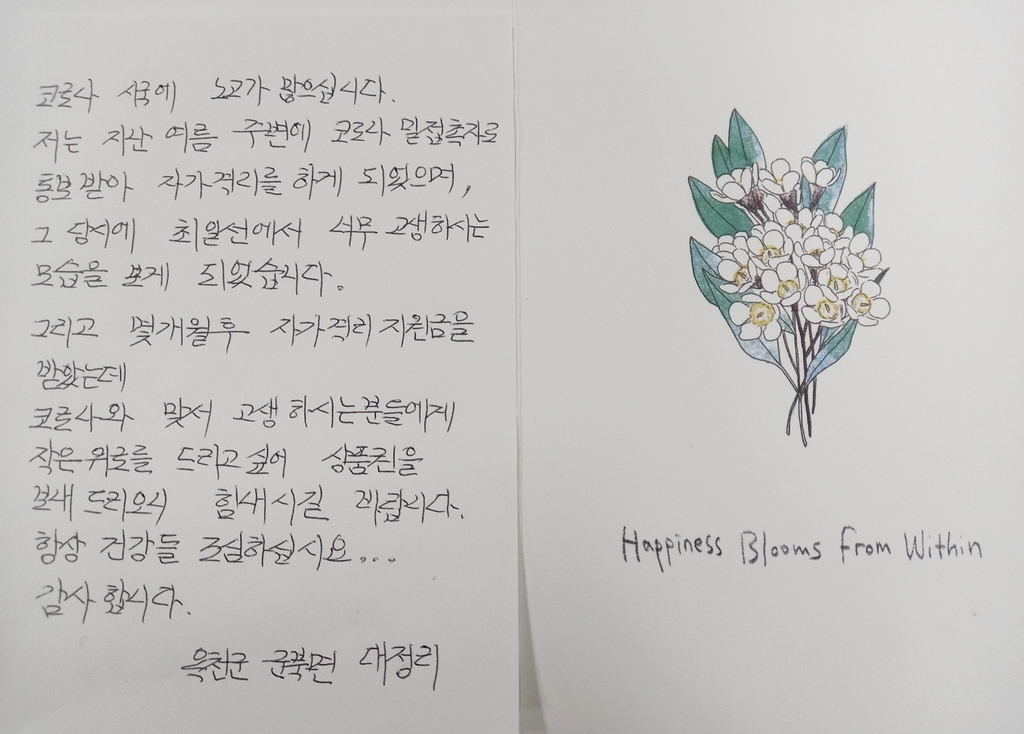 코로나 시국에 노고가 많으십니다.
저는 지난 여름 주변에 코로나 밀접촉자로
통보 받아 자가격리를 하게 되었으며,
그 당시에 최일선에서 너무 고생하시는
모습을 보게 되었습니다.
그리고 몇개월후 자가격리 지원금을
받았는데
코로나와 맞서 고생 하시는분들에게
작은위로를 드리고싶어 상품권을
보내드리오니 힘내시길 바랍니다.
항상 건강들 조심하십시요...
감사합니다.
옥천군 군북면 대정리
Happiness Blooms from Within